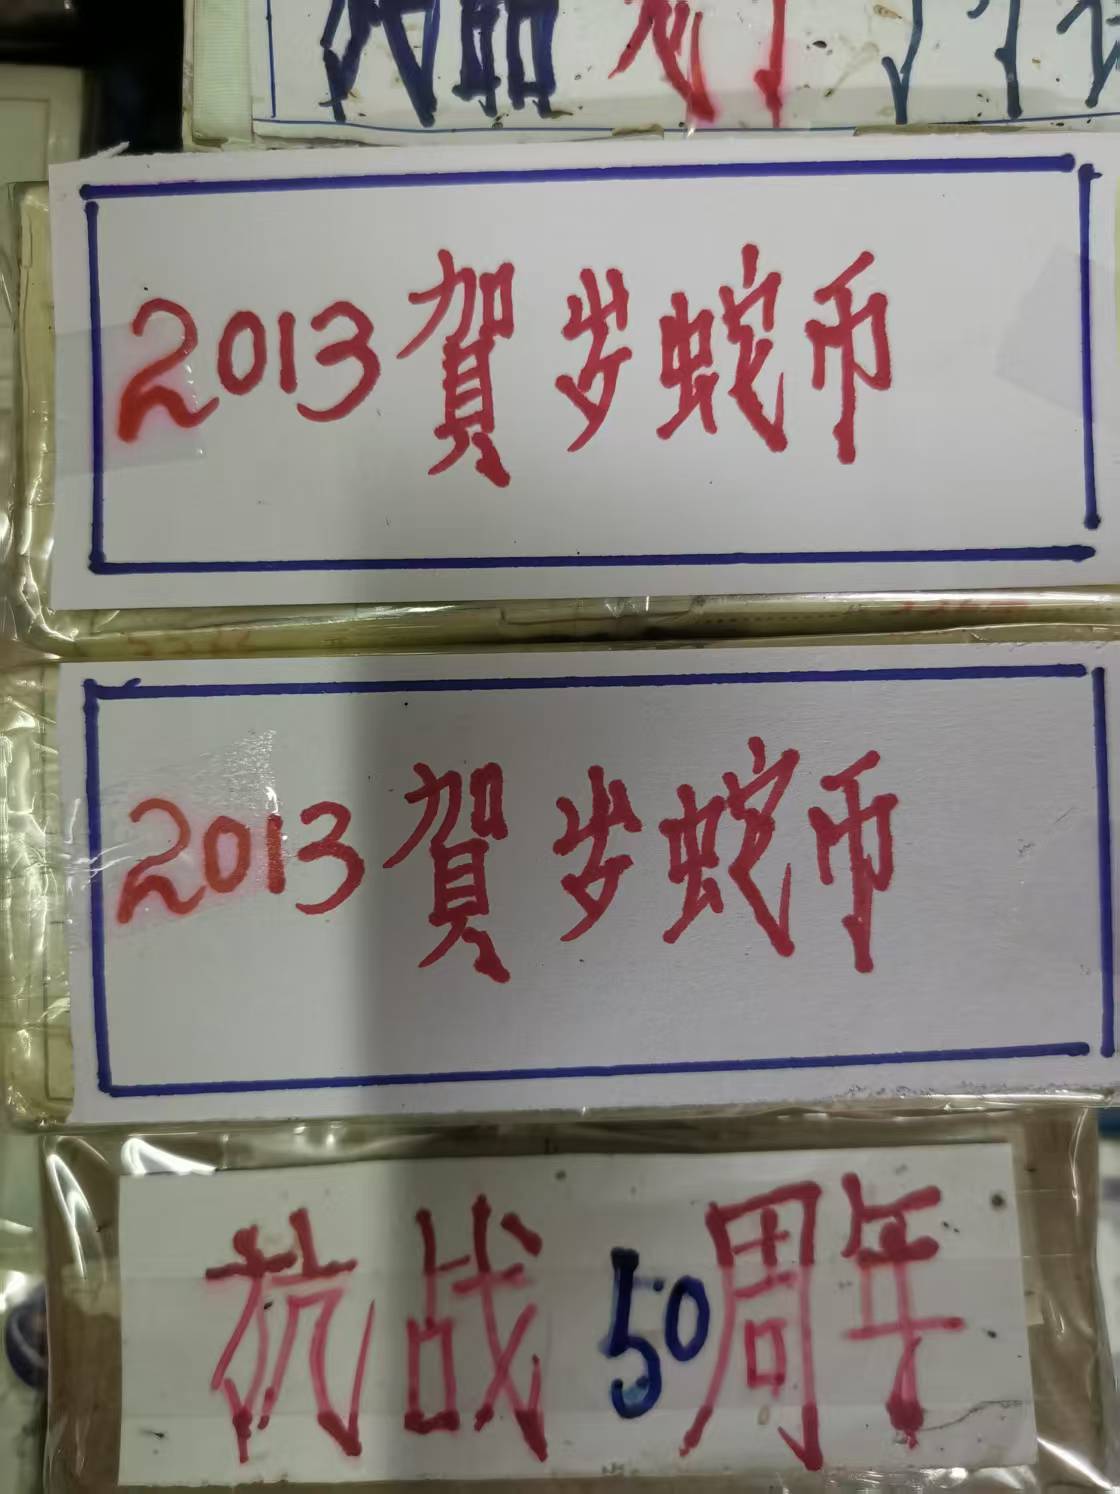 2013賀岁蛇币
2013賀岁蛇币
抗战50周年